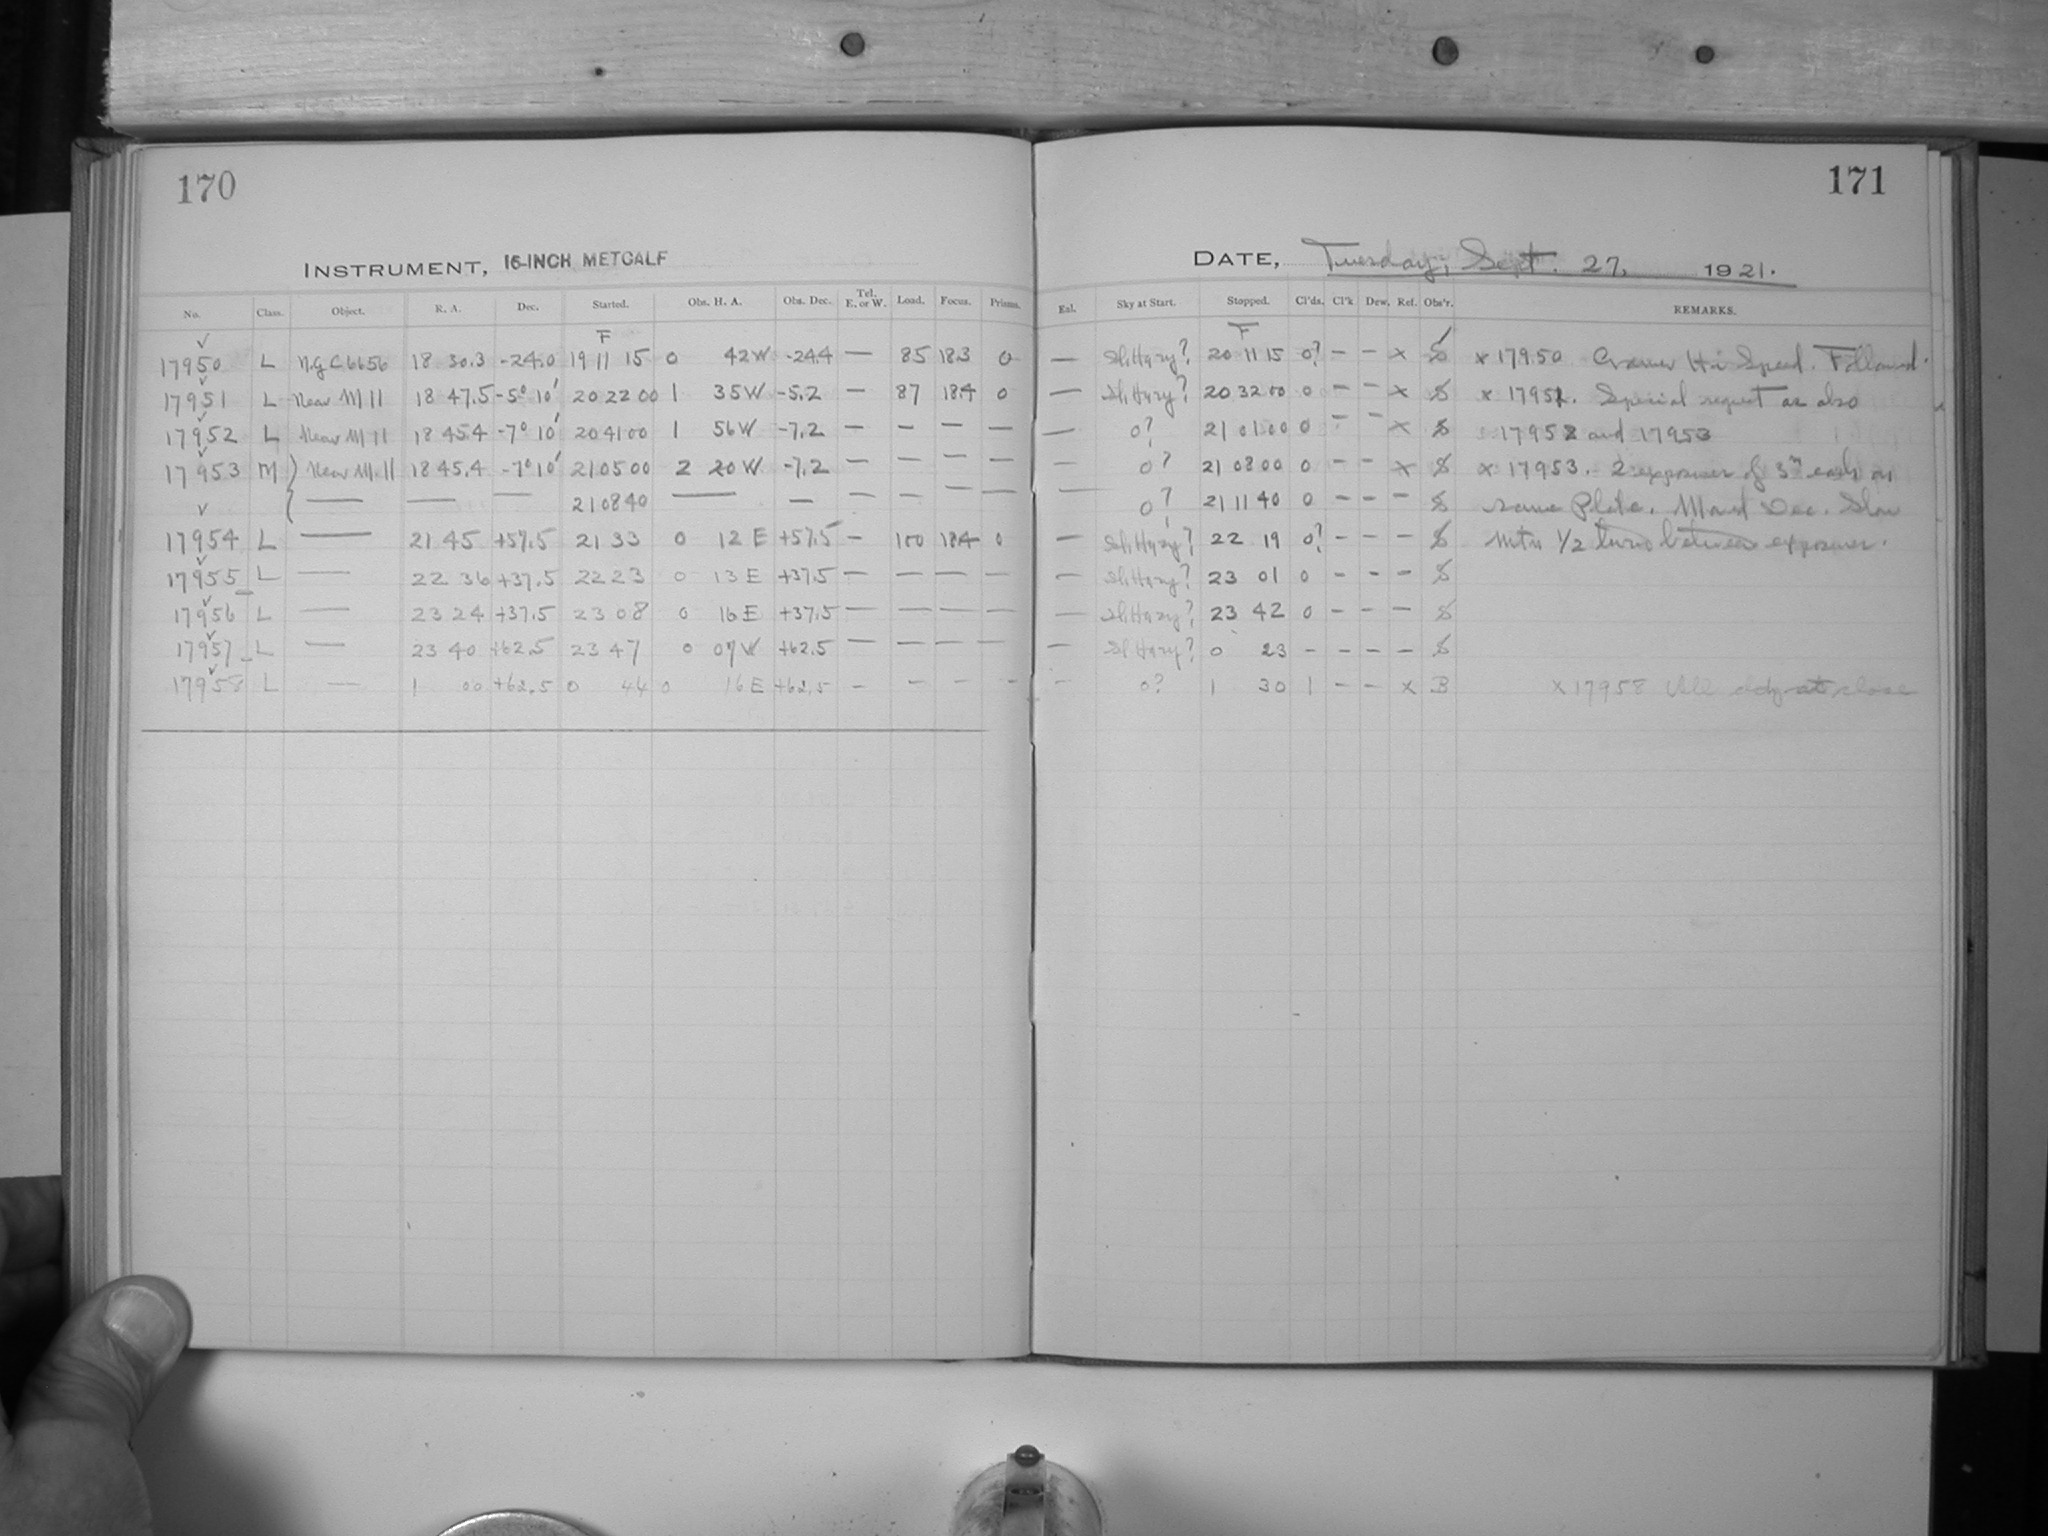 170
INSTRUMENT, 16-INCH METCALF
No. Class. Object. R. A. Dec. Started. Obs. H. A. Obs. Dec. Tel. E. or W. Load. Focus. Prisms.
F
17950 L N.G.C 6656 18 30.3 -24.0 19 11 15 0 42 W -24.4 — 85 18.3 0
17951 L Near M 11 18 47.5 -5° 10' 20 22 00 1 35 W -5.2 — 87 18.4 0
17952 L Near M 11 18 45.4 -7° 10' 20 41 00 1 56 W -7.2 — — — —
17953 M Near M 11 18 45.4 -7° 10' 21 05 00 2 20 W -7.2 — — — —
— — — 21 08 40 — — — — — —
17954 L — 21 45 +57.5 21 33 0 12 E +57.5 — 100 18.4 0
17955 L — 22 36 +37.5 22 23 0 13 E +37.5 — — — —
17956 L — 23 24 +37.5 23 08 0 16 E +37.5 — — — —
17957 L — 23 40 +62.5 23 47 0 07 W +62.5 — — — —
17958 L — 1 00 +62.5 0 44 0 16 E +62.5 — — — —
171
DATE, Tuesday, Sept. 27, 1921.
Enl. Sky at Start. Stopped. Cl'ds. Cl'k Dew. Ref. Obs'r. REMARKS.
F
— Sl. Hazy? 20 11 15 0? — — x S x 17950 Cramer Hi Speed. Followed.
— Sl. Hazy? 20 32 00 0 — — x S x 17951. Special request as also
— 0? 21 01 00 0 — — x S 17952 and 17953
— 0? 21 08 00 0 — — x S x 17953. 2 exposures of 3m each on
— 0? 21 11 40 0 — — — S same Plate. Moved Dec. Slow
— Sl. Hazy? 22 19 0? — — — S Mtn 1/2 turn between exposures.
— Sl. Hazy? 23 01 0 — — — S
— Sl. Hazy? 23 42 0 — — — S
— Sl. Hazy? 0 23 — — — — S
— 0? 1 30 1 — — x B x 17958 All cldy at close